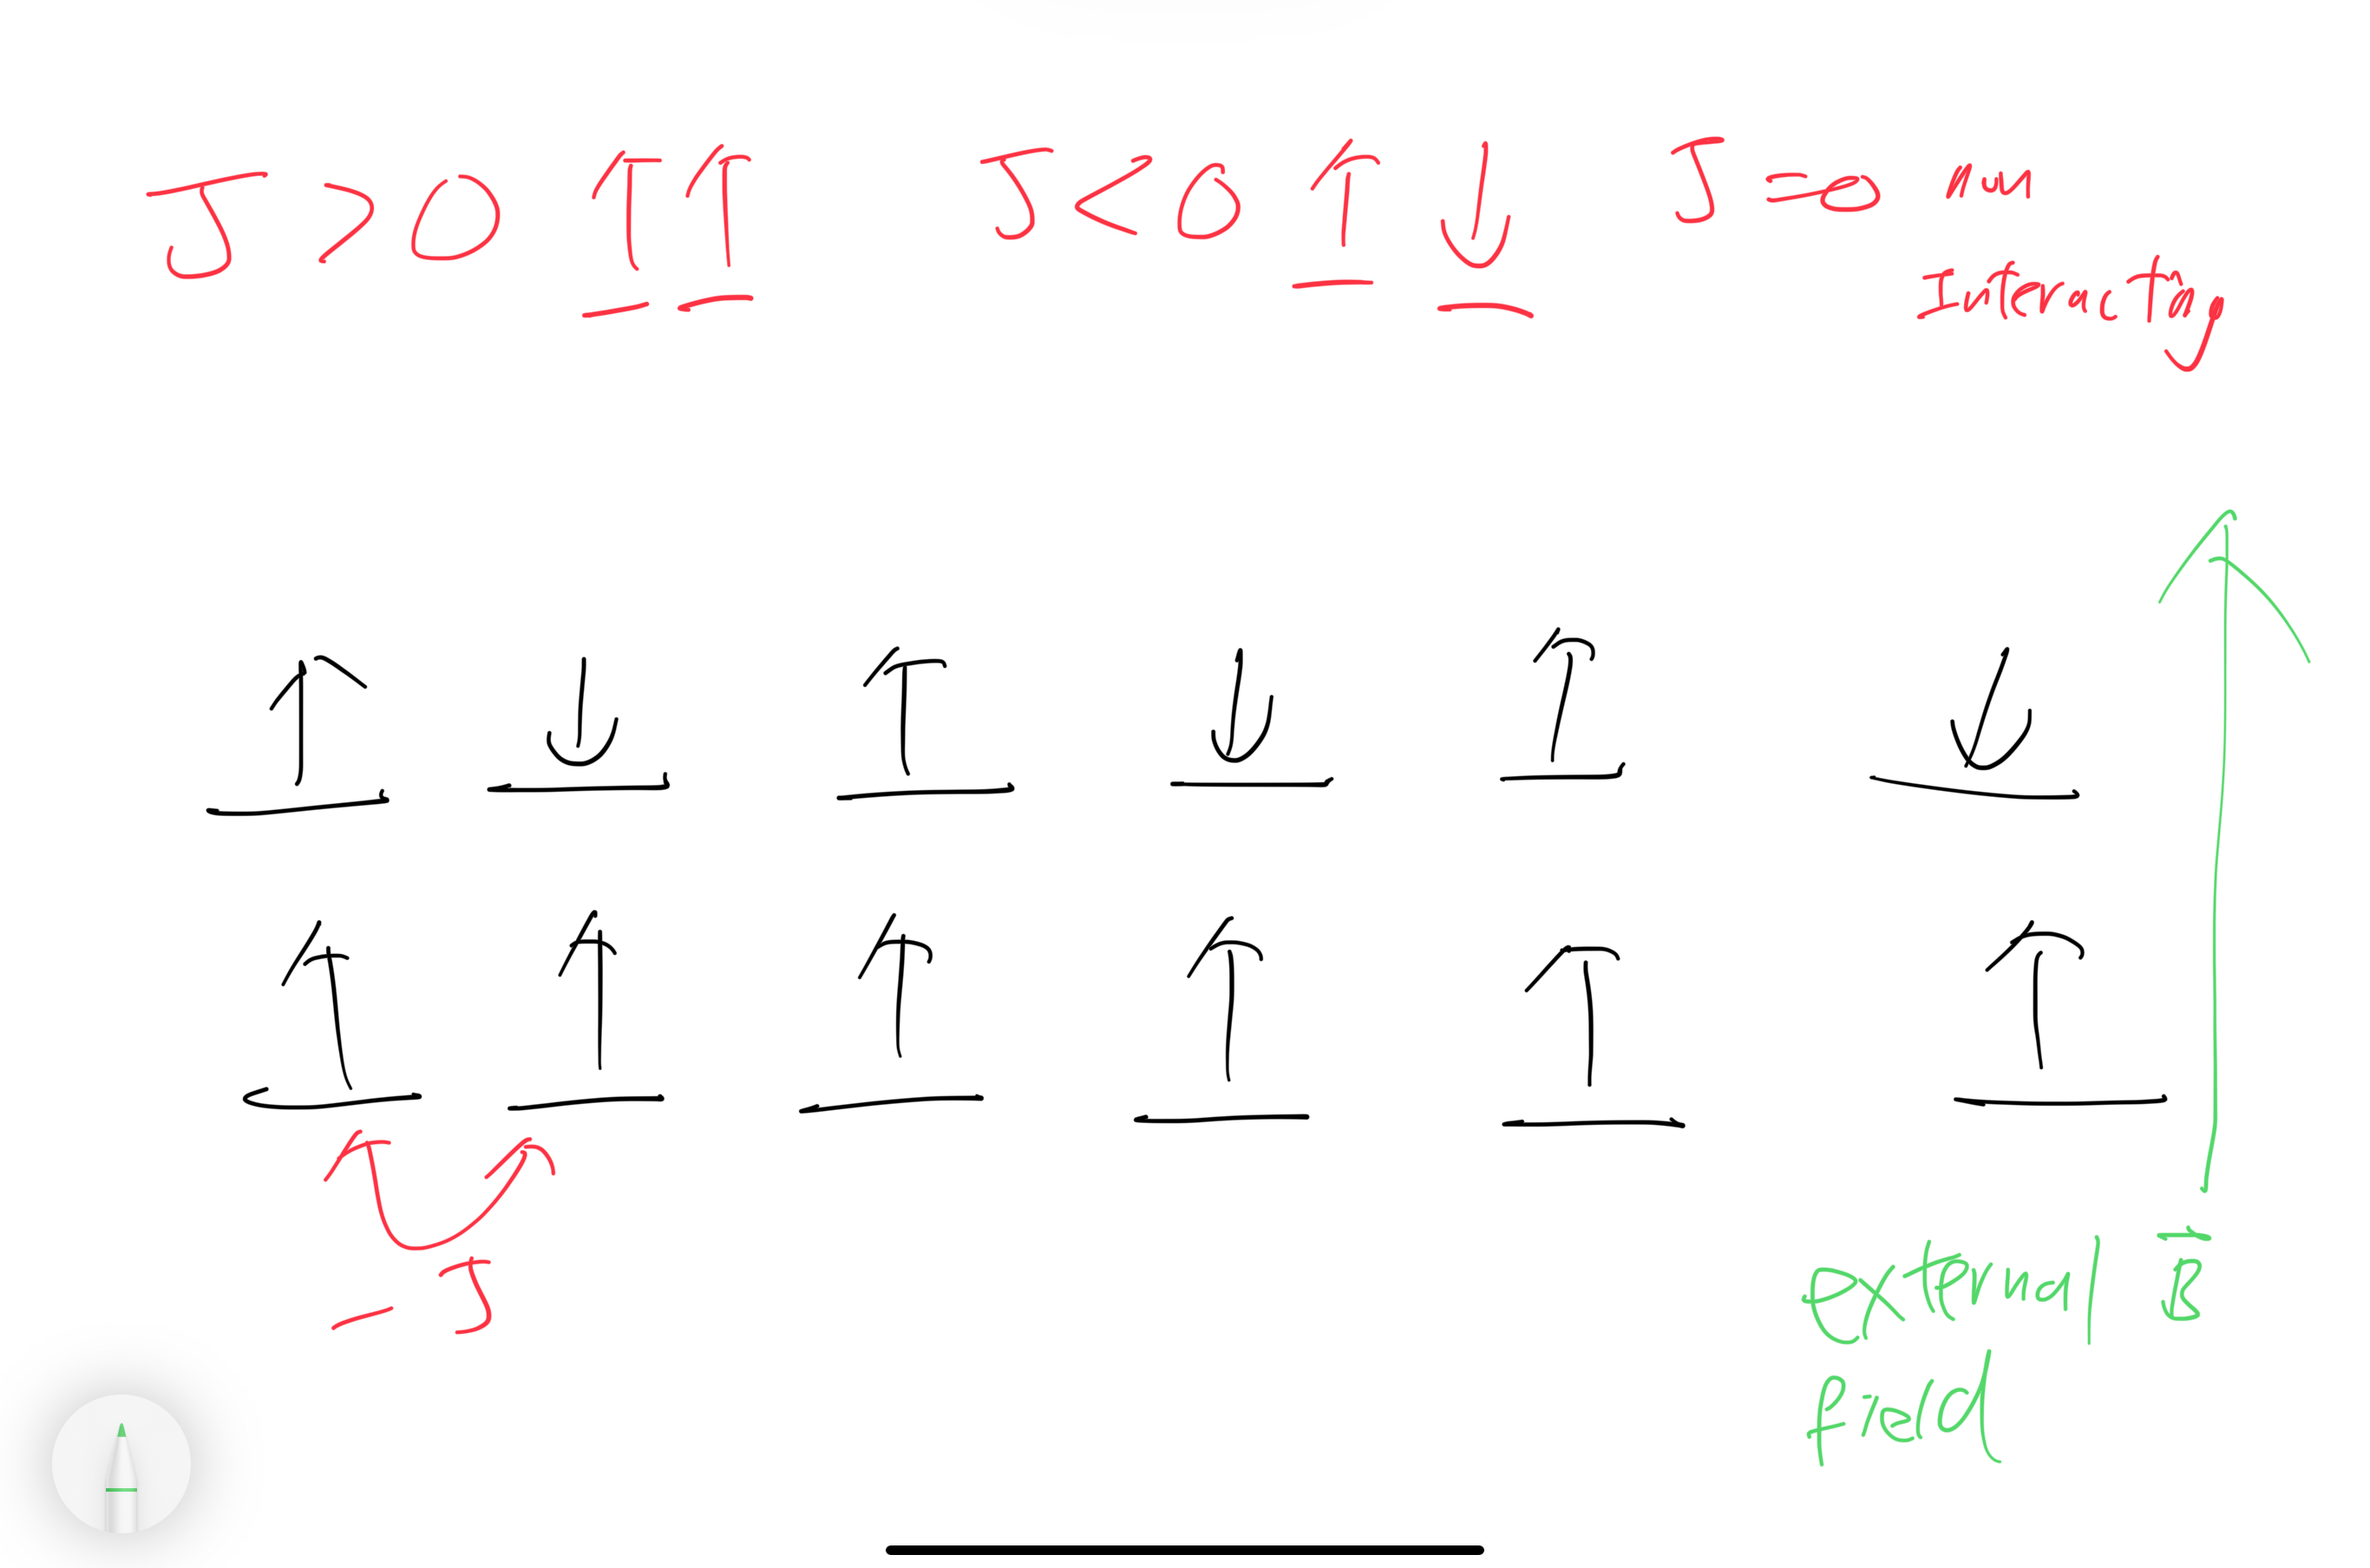 J > 0 ↑ ↑ J < 0 ↑ ↓ J = 0 non
Interacting
↑ ↓ ↑ ↓ ↑ ↓
↑ ↑ ↑ ↑ ↑ ↑
- J
external B⃗
field